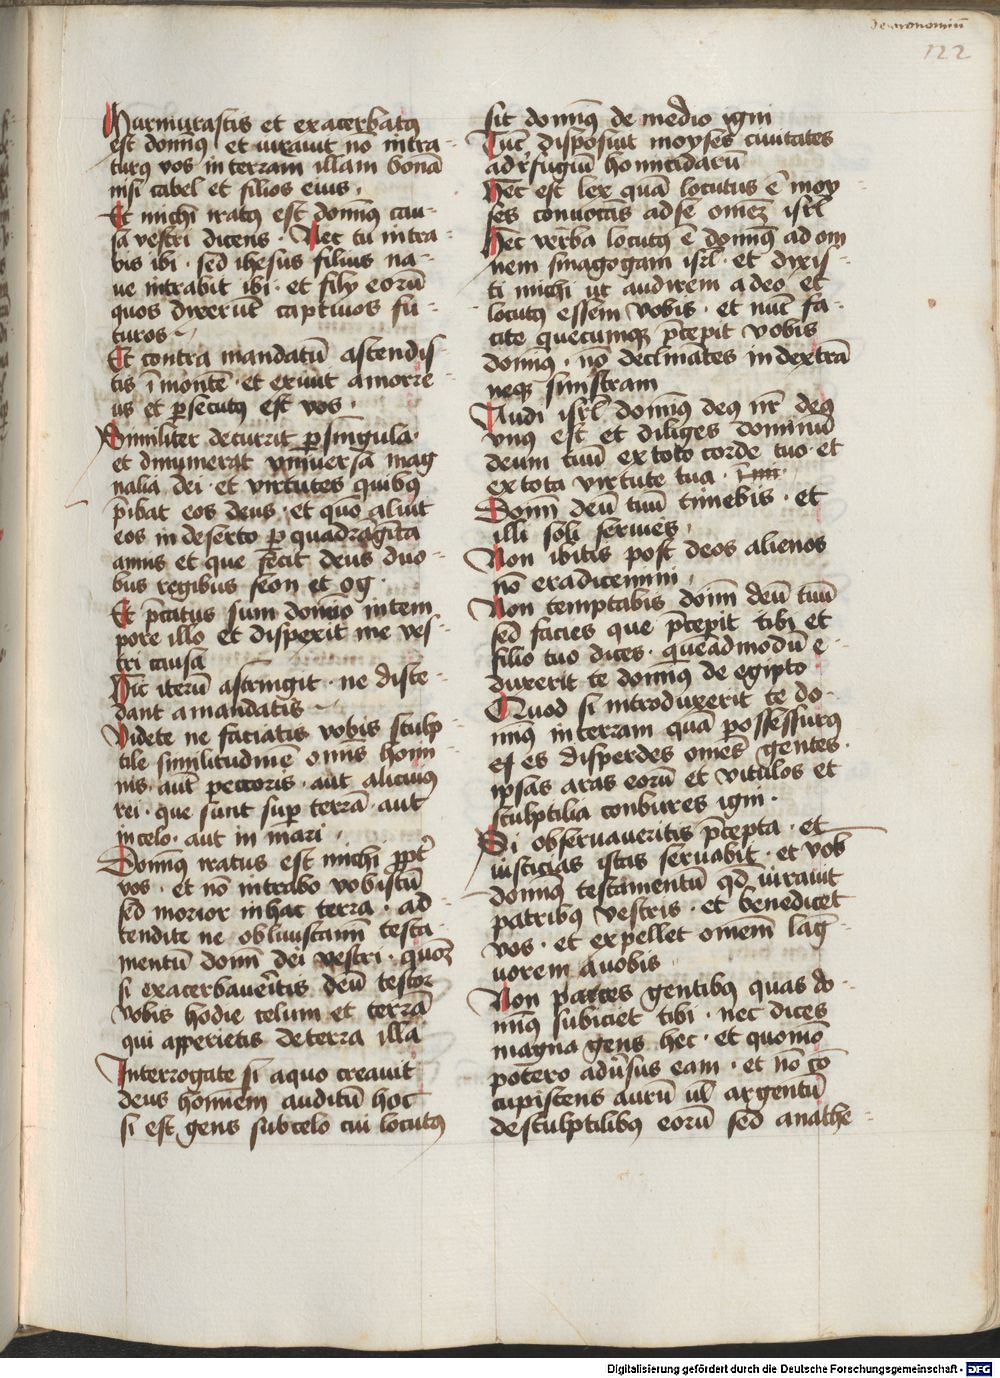 deutronomiū
122
Murmurastis et exacerbatꝰ
est domīꝰ et iurauit no intra-
turꝰ vos in terram illam bonā
nisi cabel et filios eius .
Et michi iratꝰ est domīꝰ cau-
sā vestri dicens . Nec tu intra-
bis ibi . sed ihesus filius na-
ue intrabit ibi . et filÿ eorū
quos dixerūt captiuos fu-
turos
Et contra mandatū ascendis-
tis ī monte . et exiuit amorre-
us et ꝑsecutꝰ est vos .
Similiter decurrit ꝑ singula .
et dinumerat vniuersa mag
nalia dei . et virtutes quibꝰ
p̄ibat eos deus . et quō aluit
eos in deserto ꝑ quadragīta
annis et que fecit deus duo-
bus regibus seon et og .
Et p̄catus sum domīo in tem
pore illo et dispexit me ves-
tri causa
Hic iterū astringit . ne disce-
dant a mandatis
Videte ne faciatis vobis sculp
tile similitudinē omīs homi-
nis . aut peccoris . aut alicuius
rei . que sunt suꝑ terrā . aut
in celo . aut in mari .
Domīꝰ iratus est michi ꝓpt̄
vos . et nō intrabo vobiscū
sed morior in hac terra . ad-
tendite ne obliuiscamī testa-
mentū domī dei vestri . quoꝝ
si exacerbauer̄itis deū testor
vobis hodie celum et terrā
qui apperietis de terra illa
Interrogate si a quo creauit
deus hominem auditū hoc
si est gens sub celo cui locutꝰ
sit domīꝰ de medio igni
Tūc disposuit moyses ciuitates
ad r̄fugiū homicidarū
Hec est lex quā locutus ē moy-
ses conuocās ad se omēꝫ isrl̄
Hec verba locutꝰ ē domīꝰ ad om
nem sinagogam isrl̄ . et dixis-
ti michi ut audirem a deo et
locutꝰ essem vobis . et nūc fa-
cite quecumqꝫ p̄cepit vobis
domīꝰ . nō declinates in dextrā
neqꝫ sinistram
Audi isrl̄ domīꝰ deꝰ nr̄ deꝰ
vnꝰ est et diliges dominū
deum tuū ex toto corde tuo . et
ex tota virtute tua .
Domī deū tuū timebis . et
illi soli seruies .
Non ibitis post deos alienos
nō eradicemini .
Non temptabis domī deū tuū
sed facies que p̄cepit tibi et
filio tuo dices . queadmodū e-
duxerit te domīꝰ de egipto
Quod si introduxerit te do-
mīꝰ in terram quā possessurꝰ
es disperdes omēs gentes .
ipsas aras eorū et vitulos et
sculptilia conbures igni .
Si obseruaueritis p̄cepta . et
iusticias istas seruabit . et vob
domīꝰ testamentū qd̄ iurauit
patribꝰ vestris . et benedicet
vos . et expellet omēm lag̅-
uorem a uobis
Non parces gentibꝰ quas do-
mīꝰ subiciet tibi . nec dices
magna gens hec . et quomō
potero adūsus eam . et nō cō
cupiscens aurū ul̄ argentū
de sculptilibꝰ eorū sed anathe-
Digitalisierung gefördert durch die Deutsche Forschungsgemeinschaft - DFG